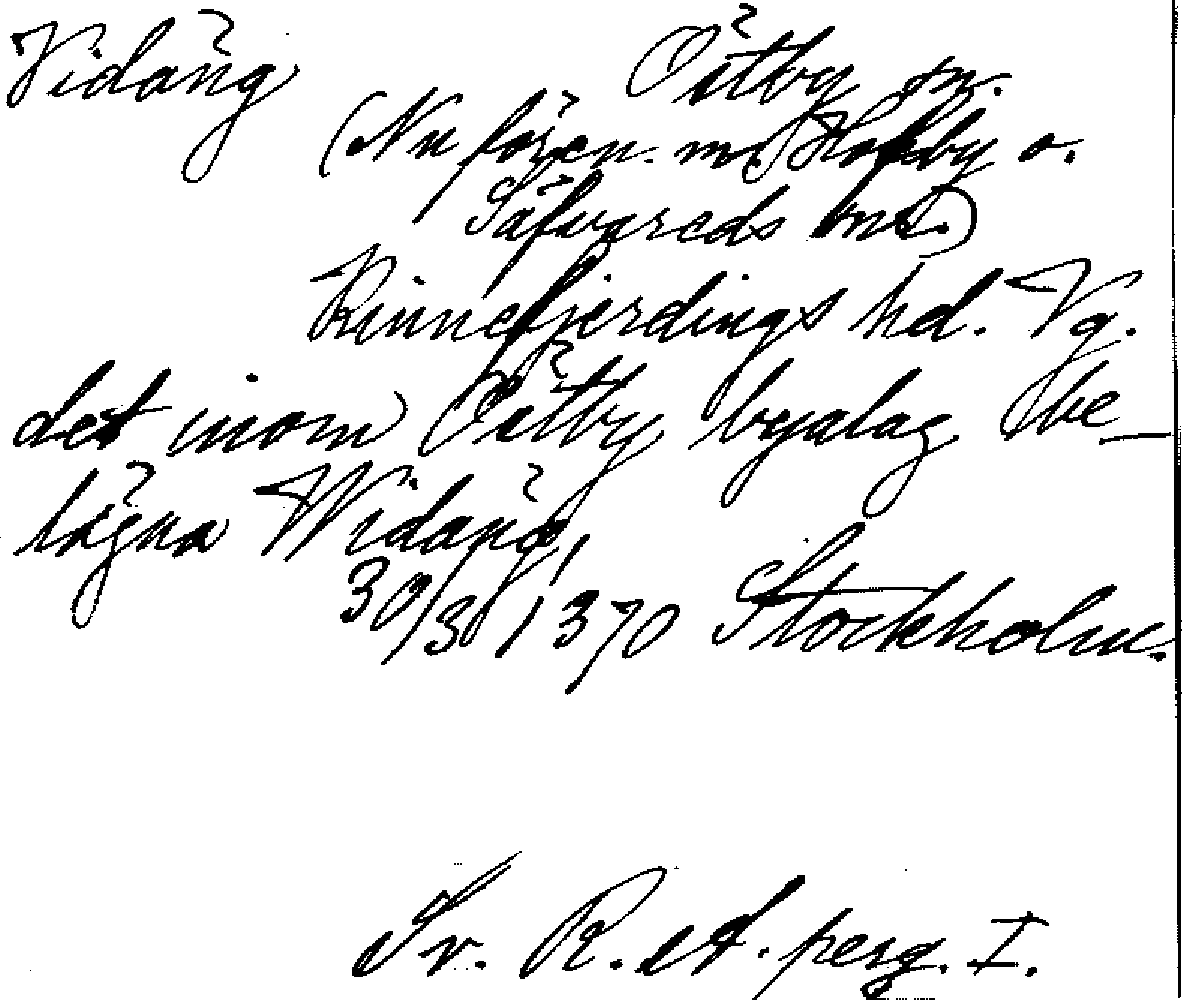 Vidäng Ötby sn.
(Nu fören. m. Hofby o.
Säfvareds sns.)
Kinnefjerdings hd. Vg.
det inom Ötby byalag be-
lägna Widäng,
30/3 1370 Stockholm.
Sv. R. A. perg. I.